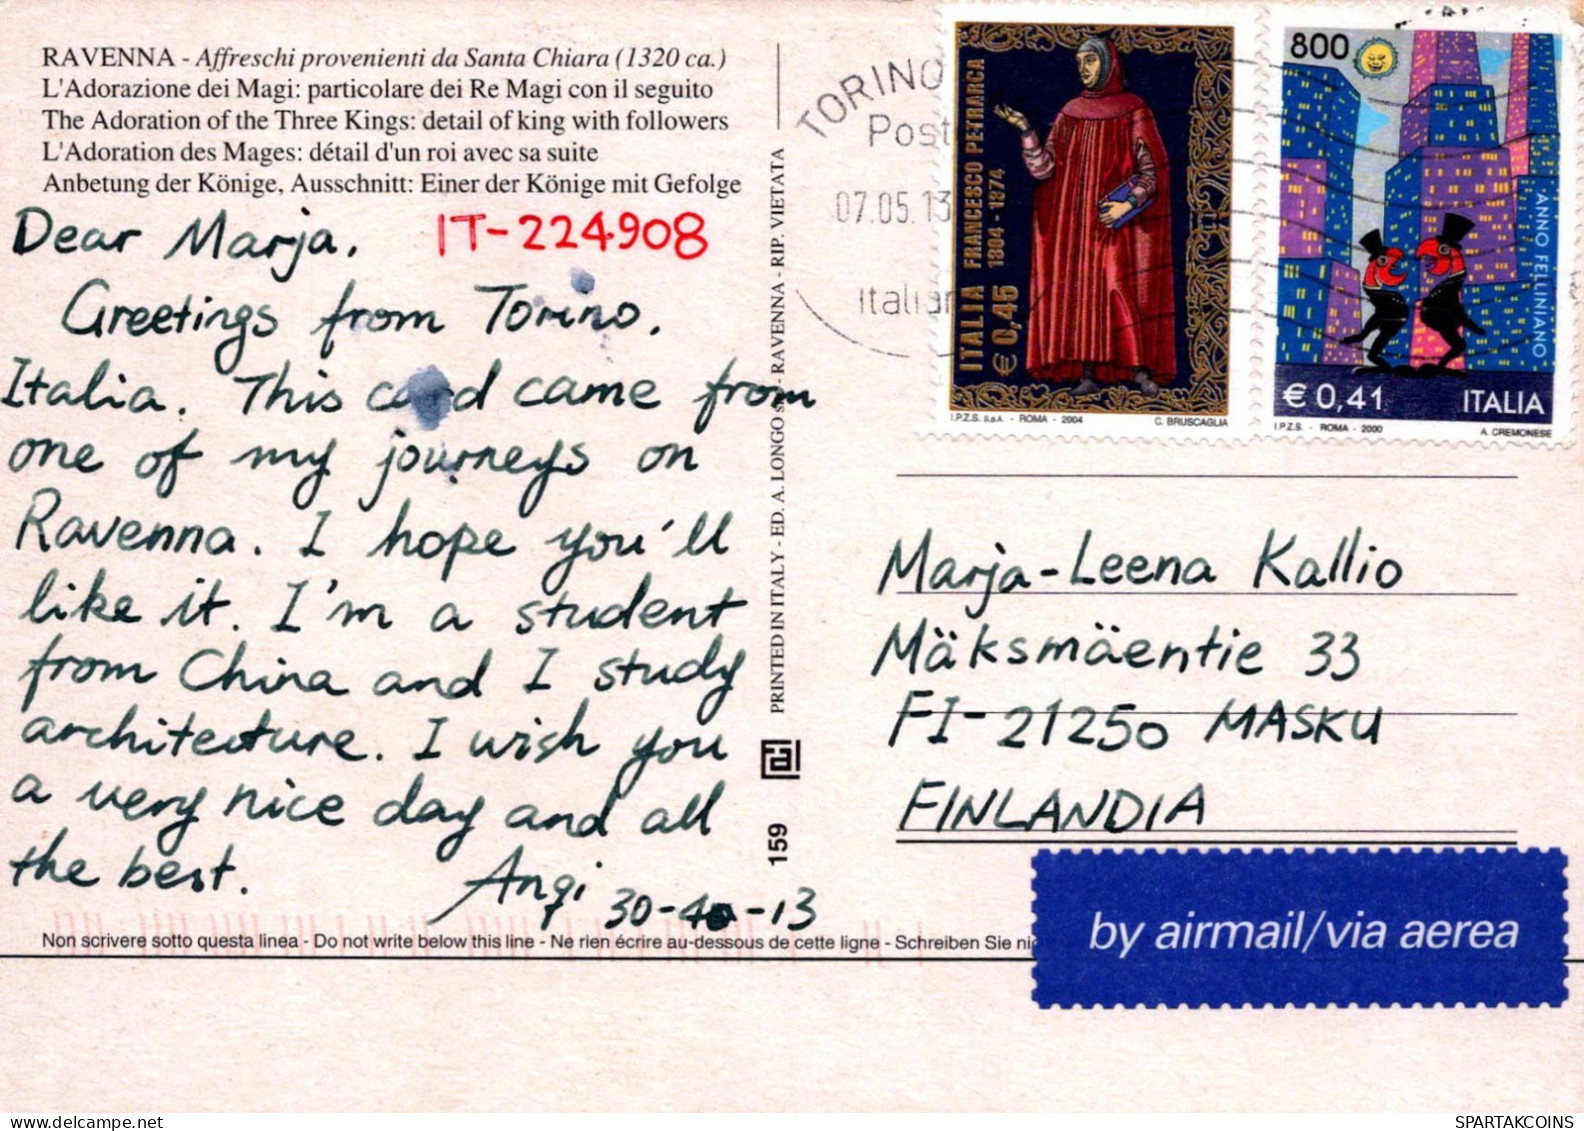 RAVENNA - Affreschi provenienti da Santa Chiara (1320 ca.)
L'Adorazione dei Magi: particolare dei Re Magi con il seguito
The Adoration of the Three Kings: detail of king with followers
L'Adoration des Mages: détail d'un roi avec sa suite
Anbetung der Könige, Ausschnitt: Einer der Könige mit Gefolge
Dear Marja, IT-224908
Greetings from Torino,
Italia. This card came from
one of my journeys on
Ravenna. I hope you'll
like it. I'm a student
from China and I study
architecture. I wish you
a very nice day and all
the best. Anqi 30-4-13
Non scrivere sotto questa linea - Do not write below this line - Ne rien écrire au-dessous de cette ligne - Schreiben Sie
PRINTED IN ITALY - ED. A. LONGO - RAVENNA - RIP. VIETATA
159
TORINO
Post
07.05.13
Italian
ITALIA FRANCESCO PETRARCA
€ 0,45 1304 - 1374
I.P.Z.S. S.p.A. - ROMA - 2004 C. BRUSCAGLIA
800
ANNO FELLINIANO
€ 0,41 ITALIA
I.P.Z.S. - ROMA - 2000 A. CREMONESE
Marja-Leena Kallio
Mäksmäentie 33
FI-21250 MASKU
FINLANDIA
by airmail/via aerea
SPARTAKCOINS.COM